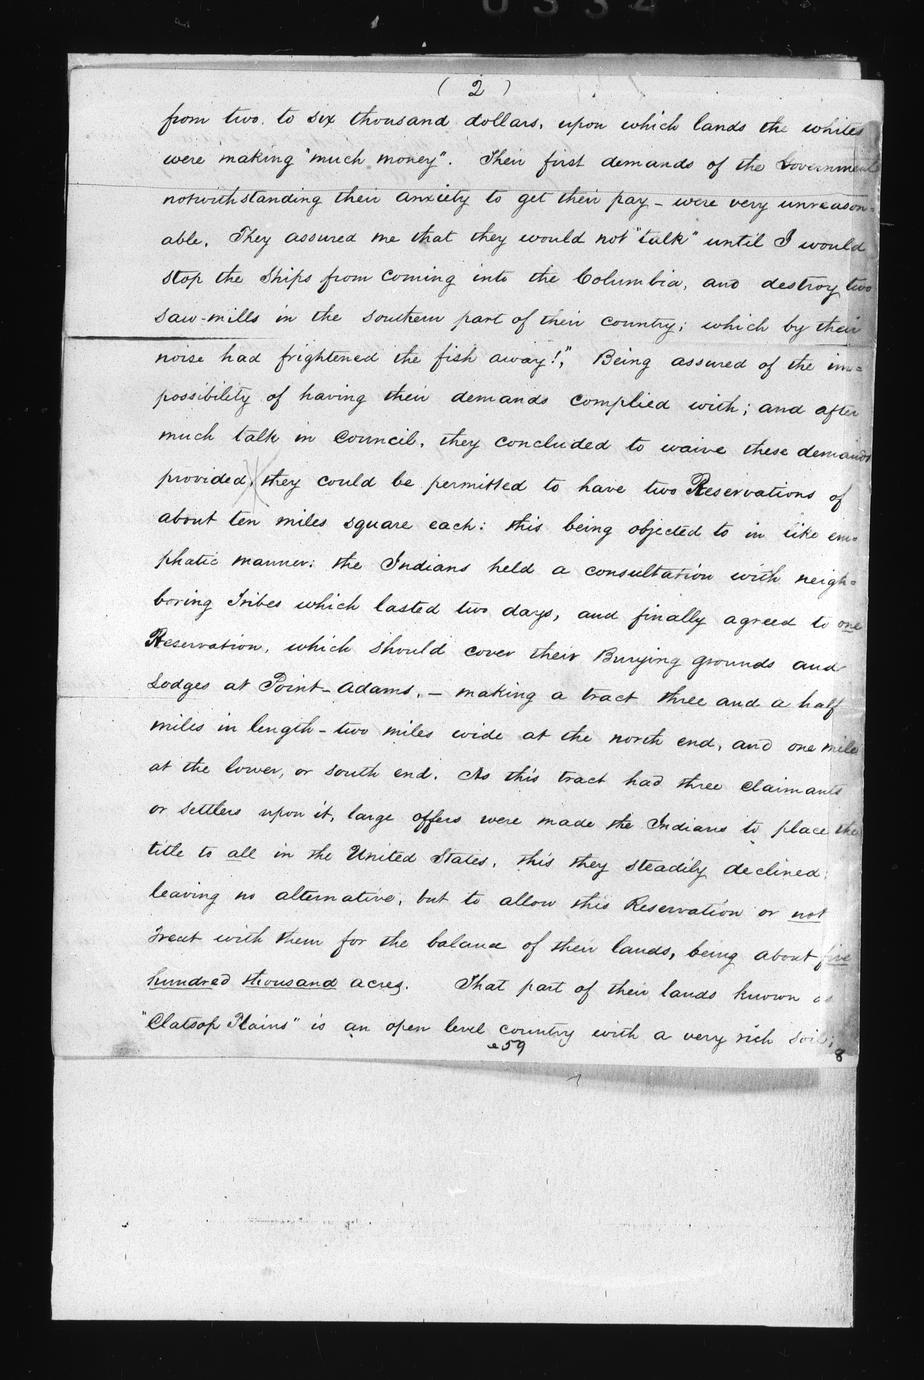 ( 2 )
from two, to six thousand dollars, upon which lands the whites
were making "much money". Their first demands of the Government
notwithstanding their anxiety to get their pay - were very unreason-
able. They assured me that they would not "talk" until I would
stop the Ships from coming into the Columbia, and destroy two
saw-mills in the southern part of their country; which by their
noise had frightened the fish away!," Being assured of the im-
possibility of having their demands complied with; and after
much talk in Council, they concluded to waive these demands
provided, they could be permitted to have two Reservations of
about ten miles square each: this being objected to in like em-
phatic manner: the Indians held a consultation with neigh-
boring Tribes which lasted two days, and finally agreed to one
Reservation, which should cover their Burying grounds and
Lodges at Point-Adams, - making a tract three and a half
miles in length - two miles wide at the north end, and one mile
at the lower, or south end. As this tract had three Claimants
or settlers upon it, large offers were made the Indians to place the
title to all in the United States, this they steadily declined;
leaving no alternative, but to allow this Reservation or not
treat with them for the balance of their lands, being about five
hundred thousand acres. That part of their lands known as
"Clatsop Plains" is an open level country with a very rich soil;
59
8